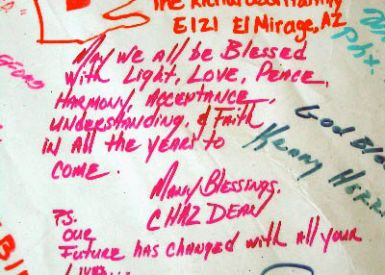 The Richardson Family
E121 El Mirage, AZ
May we all be Blessed
with Light, Love, Peace,
Harmony, Acceptance,
Understanding, & Faith
in All the years to
come.
Many Blessings,
CHAZ DEAN
P.S.
Our
Future has changed with all your
Lives
God Bless
Kenny
Phx.